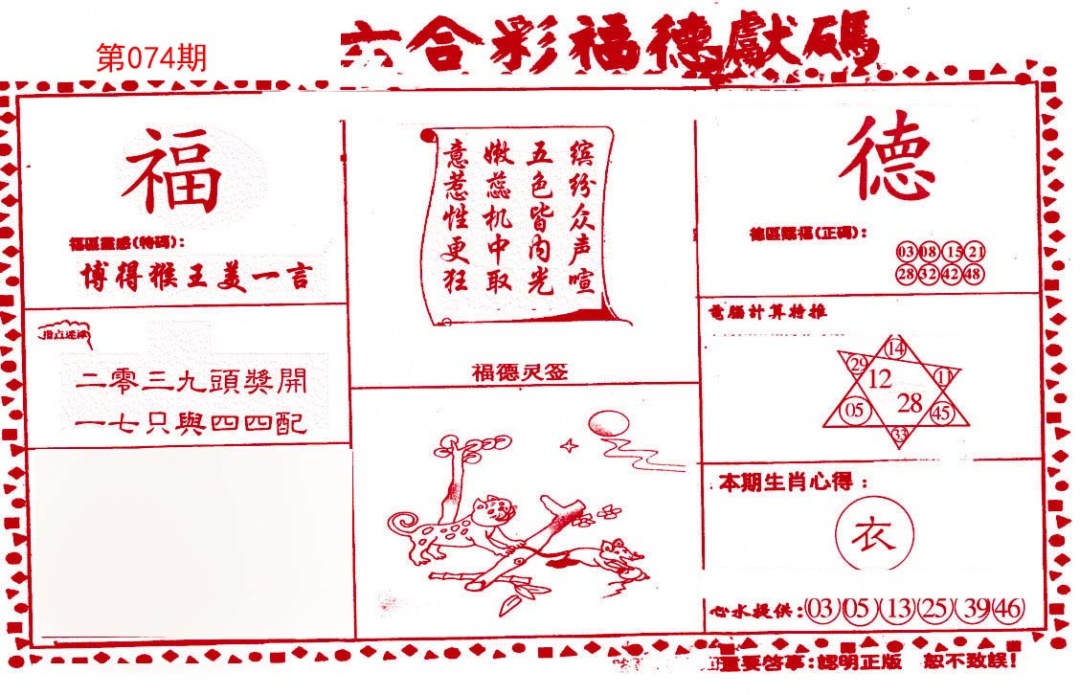 第074期
六合彩福德獻碼
福
福區靈感(特碼):
博得猴王美一言
指点迷津
二零三九頭獎開
一七只與四四配
缤纷众声喧
五色皆内光
嫩蕊机中取
意惹性更狂
福德灵签
德
德區賜福(正碼):
03 08 15 21
28 32 42 48
電腦計算特推
14
29
11
12
28
05
45
33
本期生肖心得:
衣
心水提供:03 05 13 25 39 46
重要啓事:認明正版 恕不致誤!